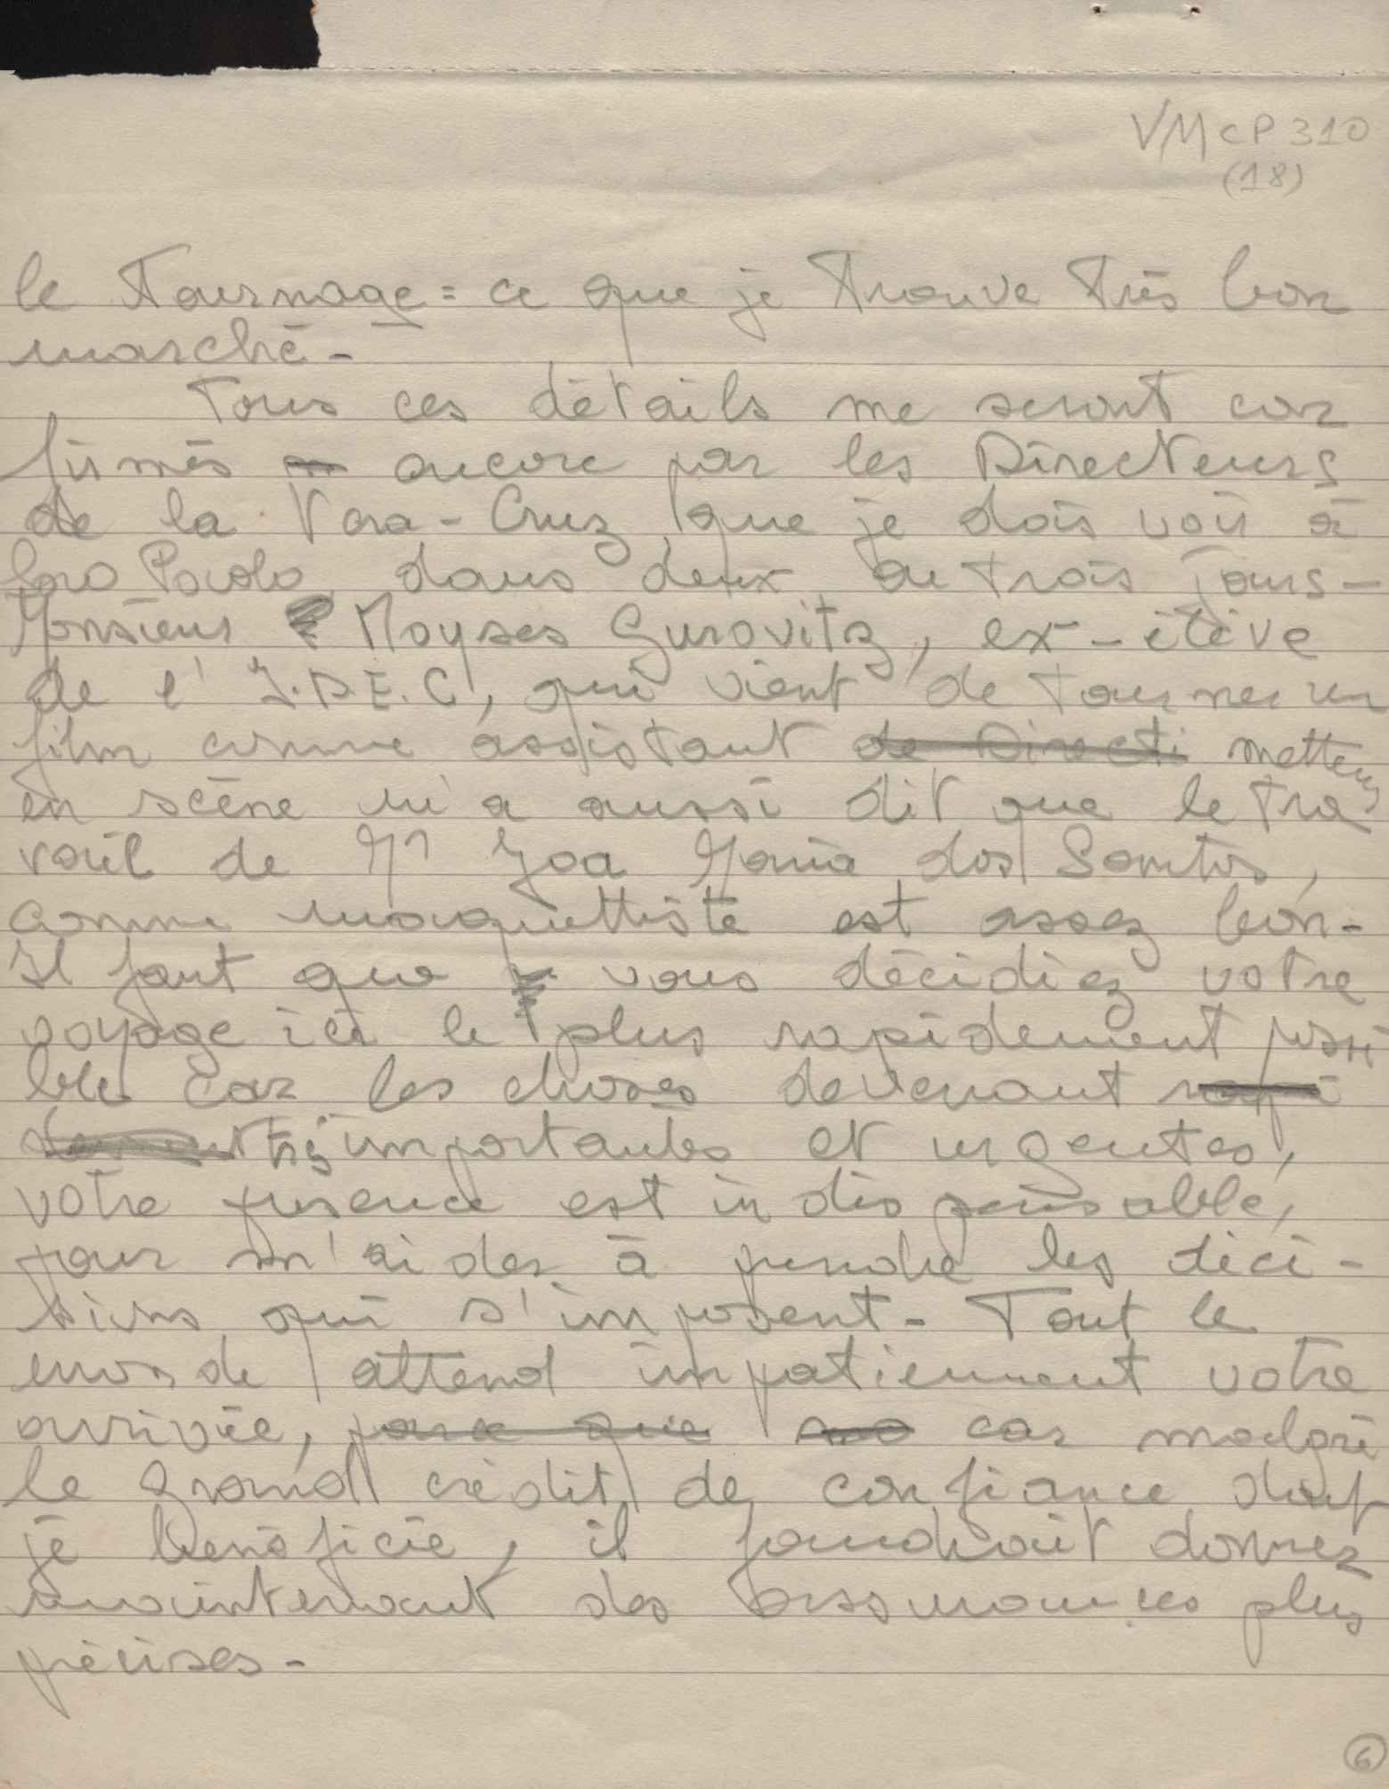 VM CP 310
(18)
le Tournage = ce que je Trouve Très bon
marché -
Tous ces détails me seront con
firmés encore par les Directeurs
de la Vera-Cruz que je dois voir à
Sao Paolo dans deux ou trois Jours -
Monsieur Moyses Gurovitz, ex-élève
de l'I.D.E.C, qui vient de tourner un
film comme assistant de Directi metteur
en scène m'a aussi dit que le tra
vail de Mr Joa Maria dos Santos,
comme maquettiste est assez bon -
Il faut que vous décidiez votre
voyage ici le plus rapidement possi
ble car les choses devenant rapi
dement très importantes et urgentes,
votre présence est indispensable,
pour m'aider à prendre les déci-
sions qui s'imposent - Tout le
monde attend impatiemment votre
arrivée, parce que car malgré
le grand crédit de confiance dont
je bénéficie, il faudrait donner
maintenant des assurances plus
précises -
6